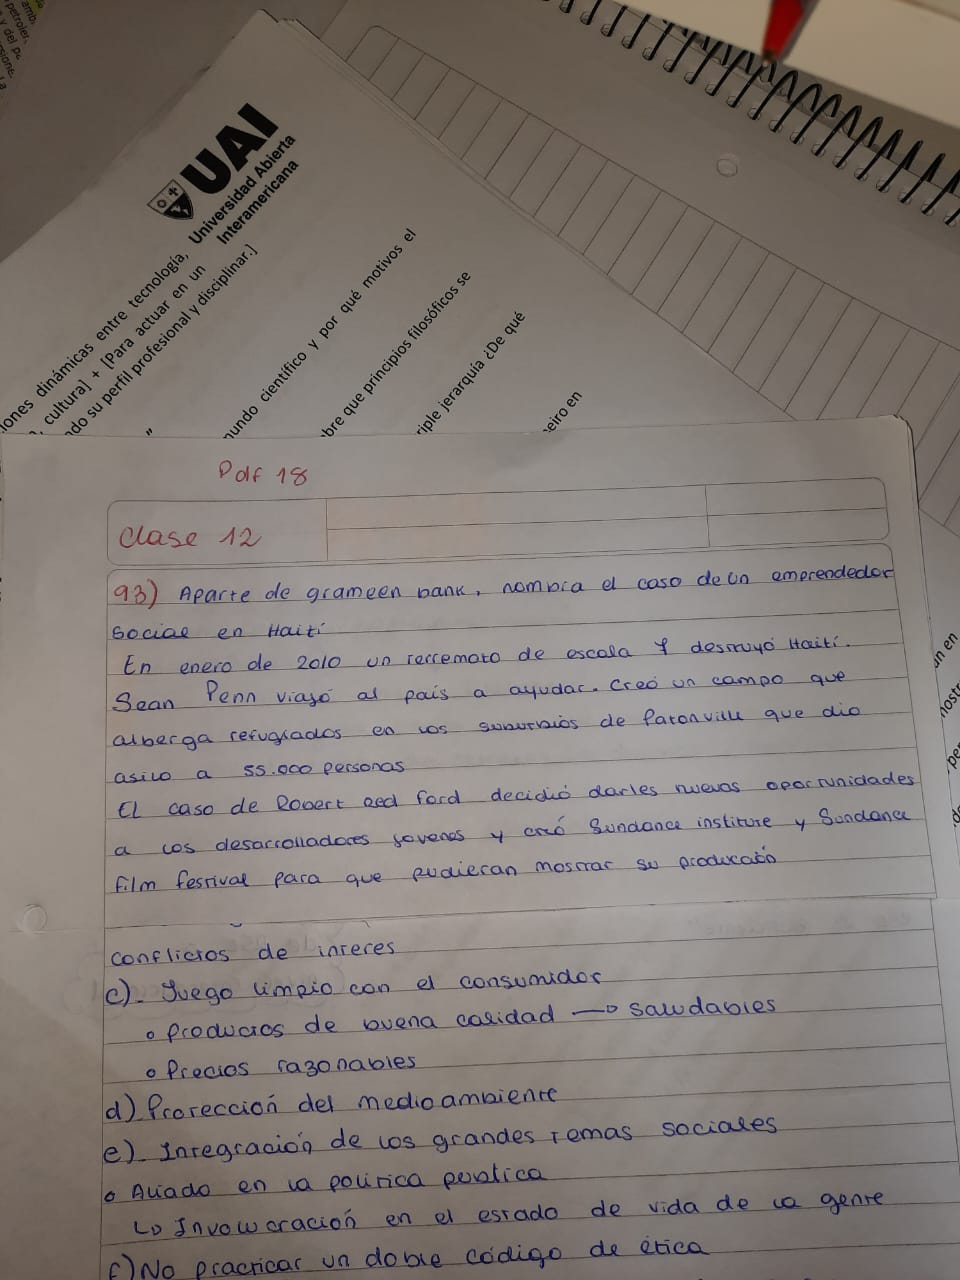 UAI
Universidad Abierta
Interamericana
iones dinámicas entre tecnología,
cultural] + [Para actuar en un
ndo su perfil profesional y disciplinar.]
"
nundo científico y por qué motivos el
bre que principios filosóficos se
riple jerarquía ¿De qué
eiro en
Pdf 18
Clase 12
93) Aparte de grameen bank, nombra el caso de un emprendedor
social en Haití
En enero de 2010 un terremoto de escala 7 destruyó Haití.
Sean Penn viajó al país a ayudar. Creó un campo que
alberga refugiados en los suburbios de Patonville que dio
asilo a 55.000 personas
El caso de Robert Red ford decidió darles nuevas oportunidades
a los desarrolladores jovenes y creó Sundance institute y Sundance
film festival para que pudieran mostrar su producción
conflictos de interes
c). Juego limpio con el consumidor
o Productos de buena calidad → saludables
o Precios razonables
d) Protección del medioambiente
e). Integración de los grandes temas sociales
o Aliado en la politica publica
↳ Involucración en el estado de vida de la gente
f) No practicar un doble código de ética